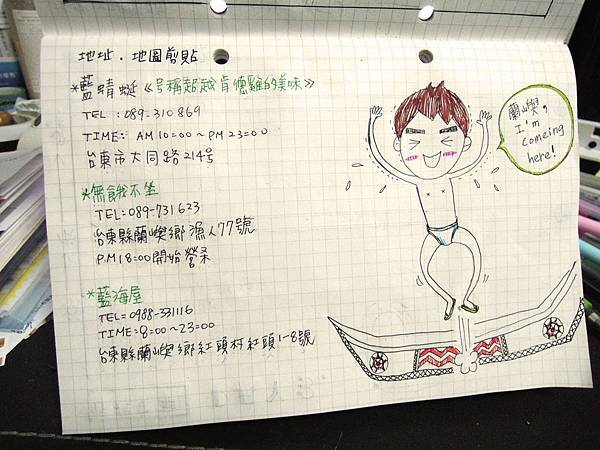 地址．地圖剪貼
*藍蜻蜓《号稱超越肯德雞的美味》
TEL：089-310869
TIME：AM10:00～PM23:00
台東市大同路214号
*無餓不坐
TEL：089-731623
台東縣蘭嶼鄉漁人77號
P.M18:00開始營業
*藍海屋
TEL：0988-331116
TIME：8:00～23:00
台東縣蘭嶼鄉紅頭村紅頭1-8號
蘭嶼，
I'm
comeing
here!